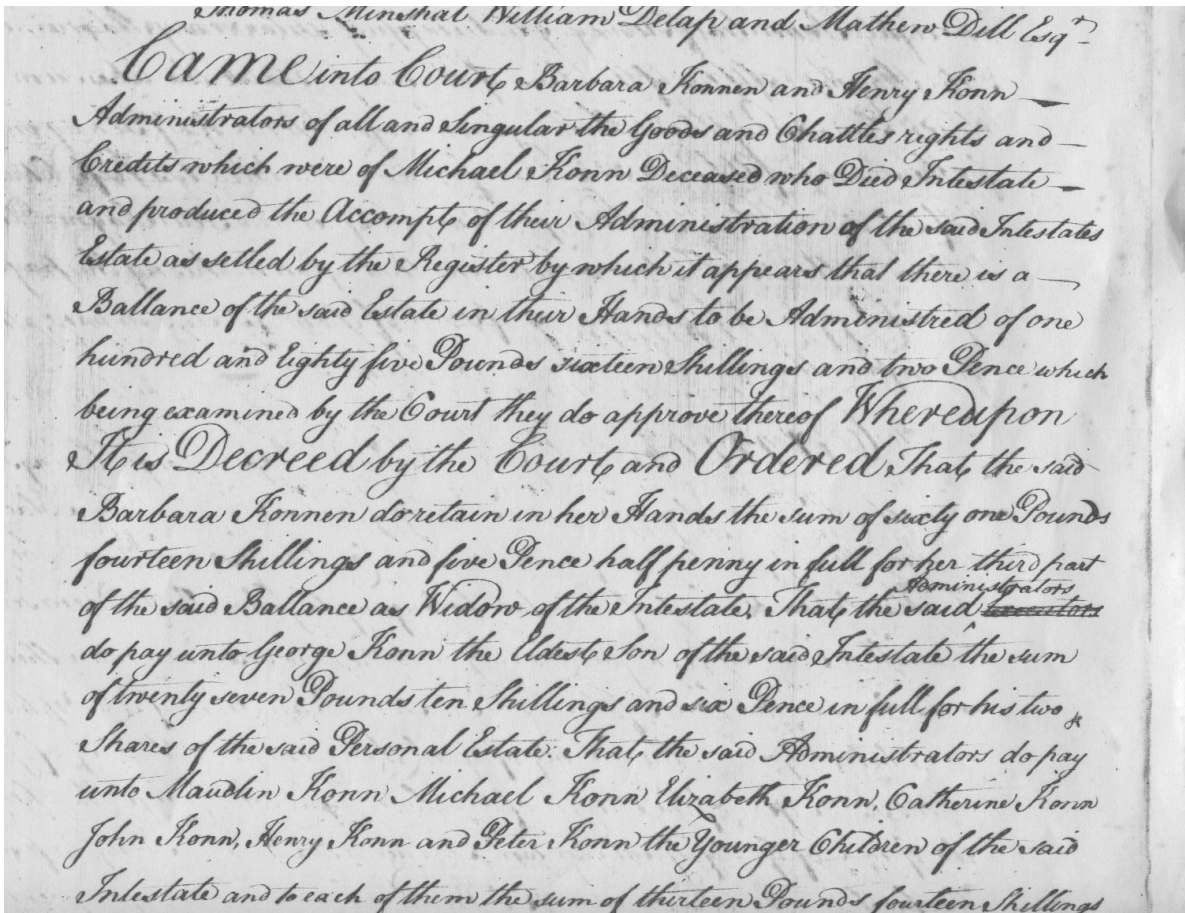 Thomas Minshal William Delap and Mathew Dill Esqr
Came into Court Barbara Konnen and Henry Konn
Administrators of all and Singular the Goods and Chattles rights and
Credits which were of Michael Konn Deceased who Died Intestate
and produced the Accompt of their Administration of the said Intestates
Estate as setled by the Register by which it appears that there is a
Ballance of the said Estate in their Hands to be Administred of one
hundred and Eighty five Pounds sixteen Shillings and two Pence which
being examined by the Court they do approve thereof Whereupon
It is Decreed by the Court and Ordered That the said
Barbara Konnen do retain in her Hands the sum of sixty one Pounds
fourteen Shillings and five Pence half penny in full for her third part
of the said Ballance as Widow of the Intestate. That the said Administrators Executors
do pay unto George Konn the Eldest Son of the said Intestate the sum
of twenty seven Pounds ten Shillings and six Pence in full for his two
Shares of the said Personal Estate: That the said Administrators do pay
unto Maudlin Konn Michael Konn Elizabeth Konn, Catherine Konn
John Konn, Henry Konn and Peter Konn the Younger Children of the said
Intestate and to each of them the sum of thirteen Pounds fourteen Shillings